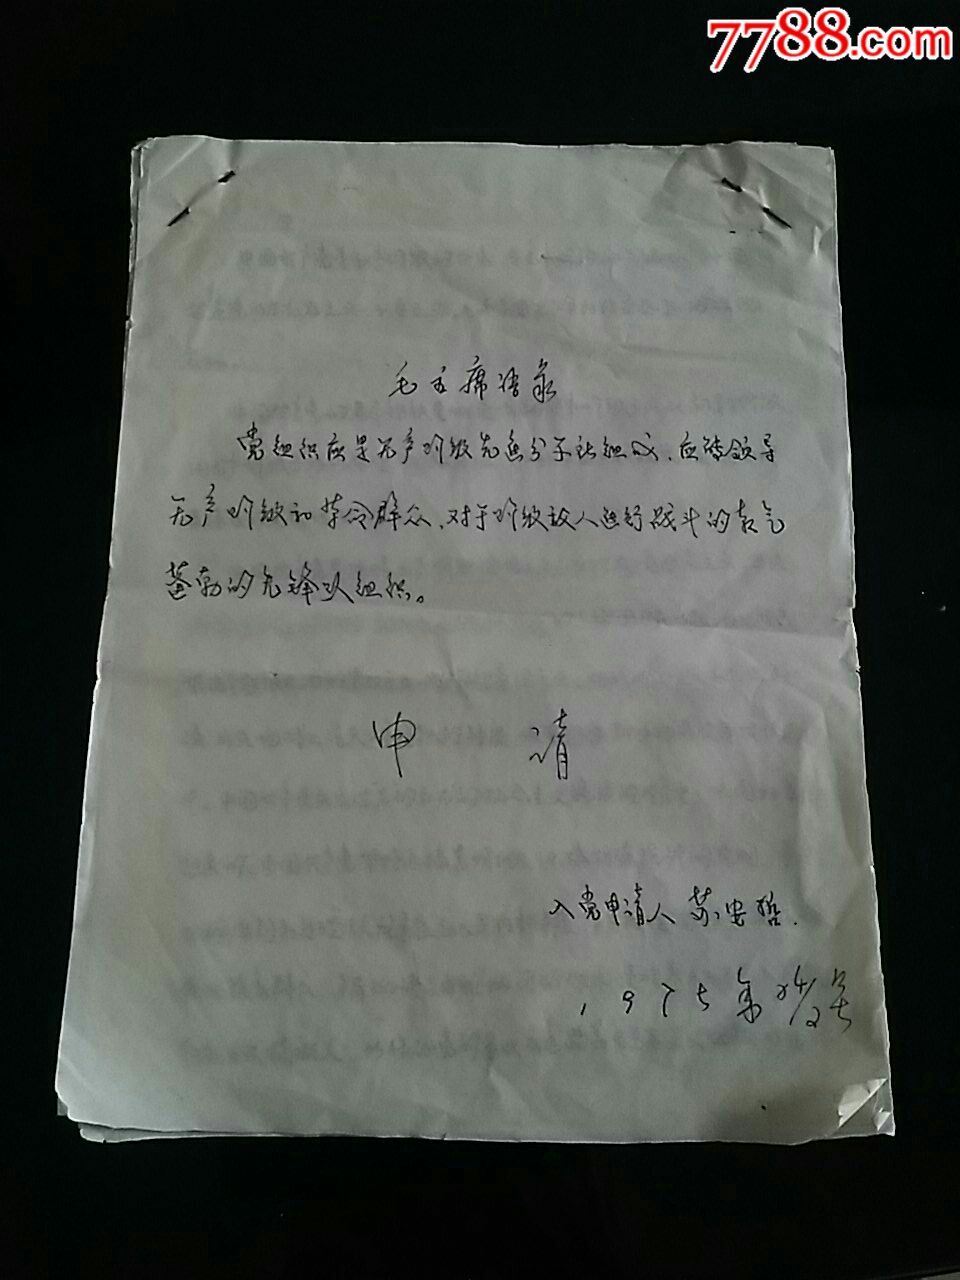 7788.com
毛主席语录
党组织应是无产阶级先进分子所组成，应能领导
无产阶级和革命群众，对于阶级敌人进行战斗的朝气
蓬勃的先锋队组织。
申 请
入党申请人 苏安哲.
1975年24/2号